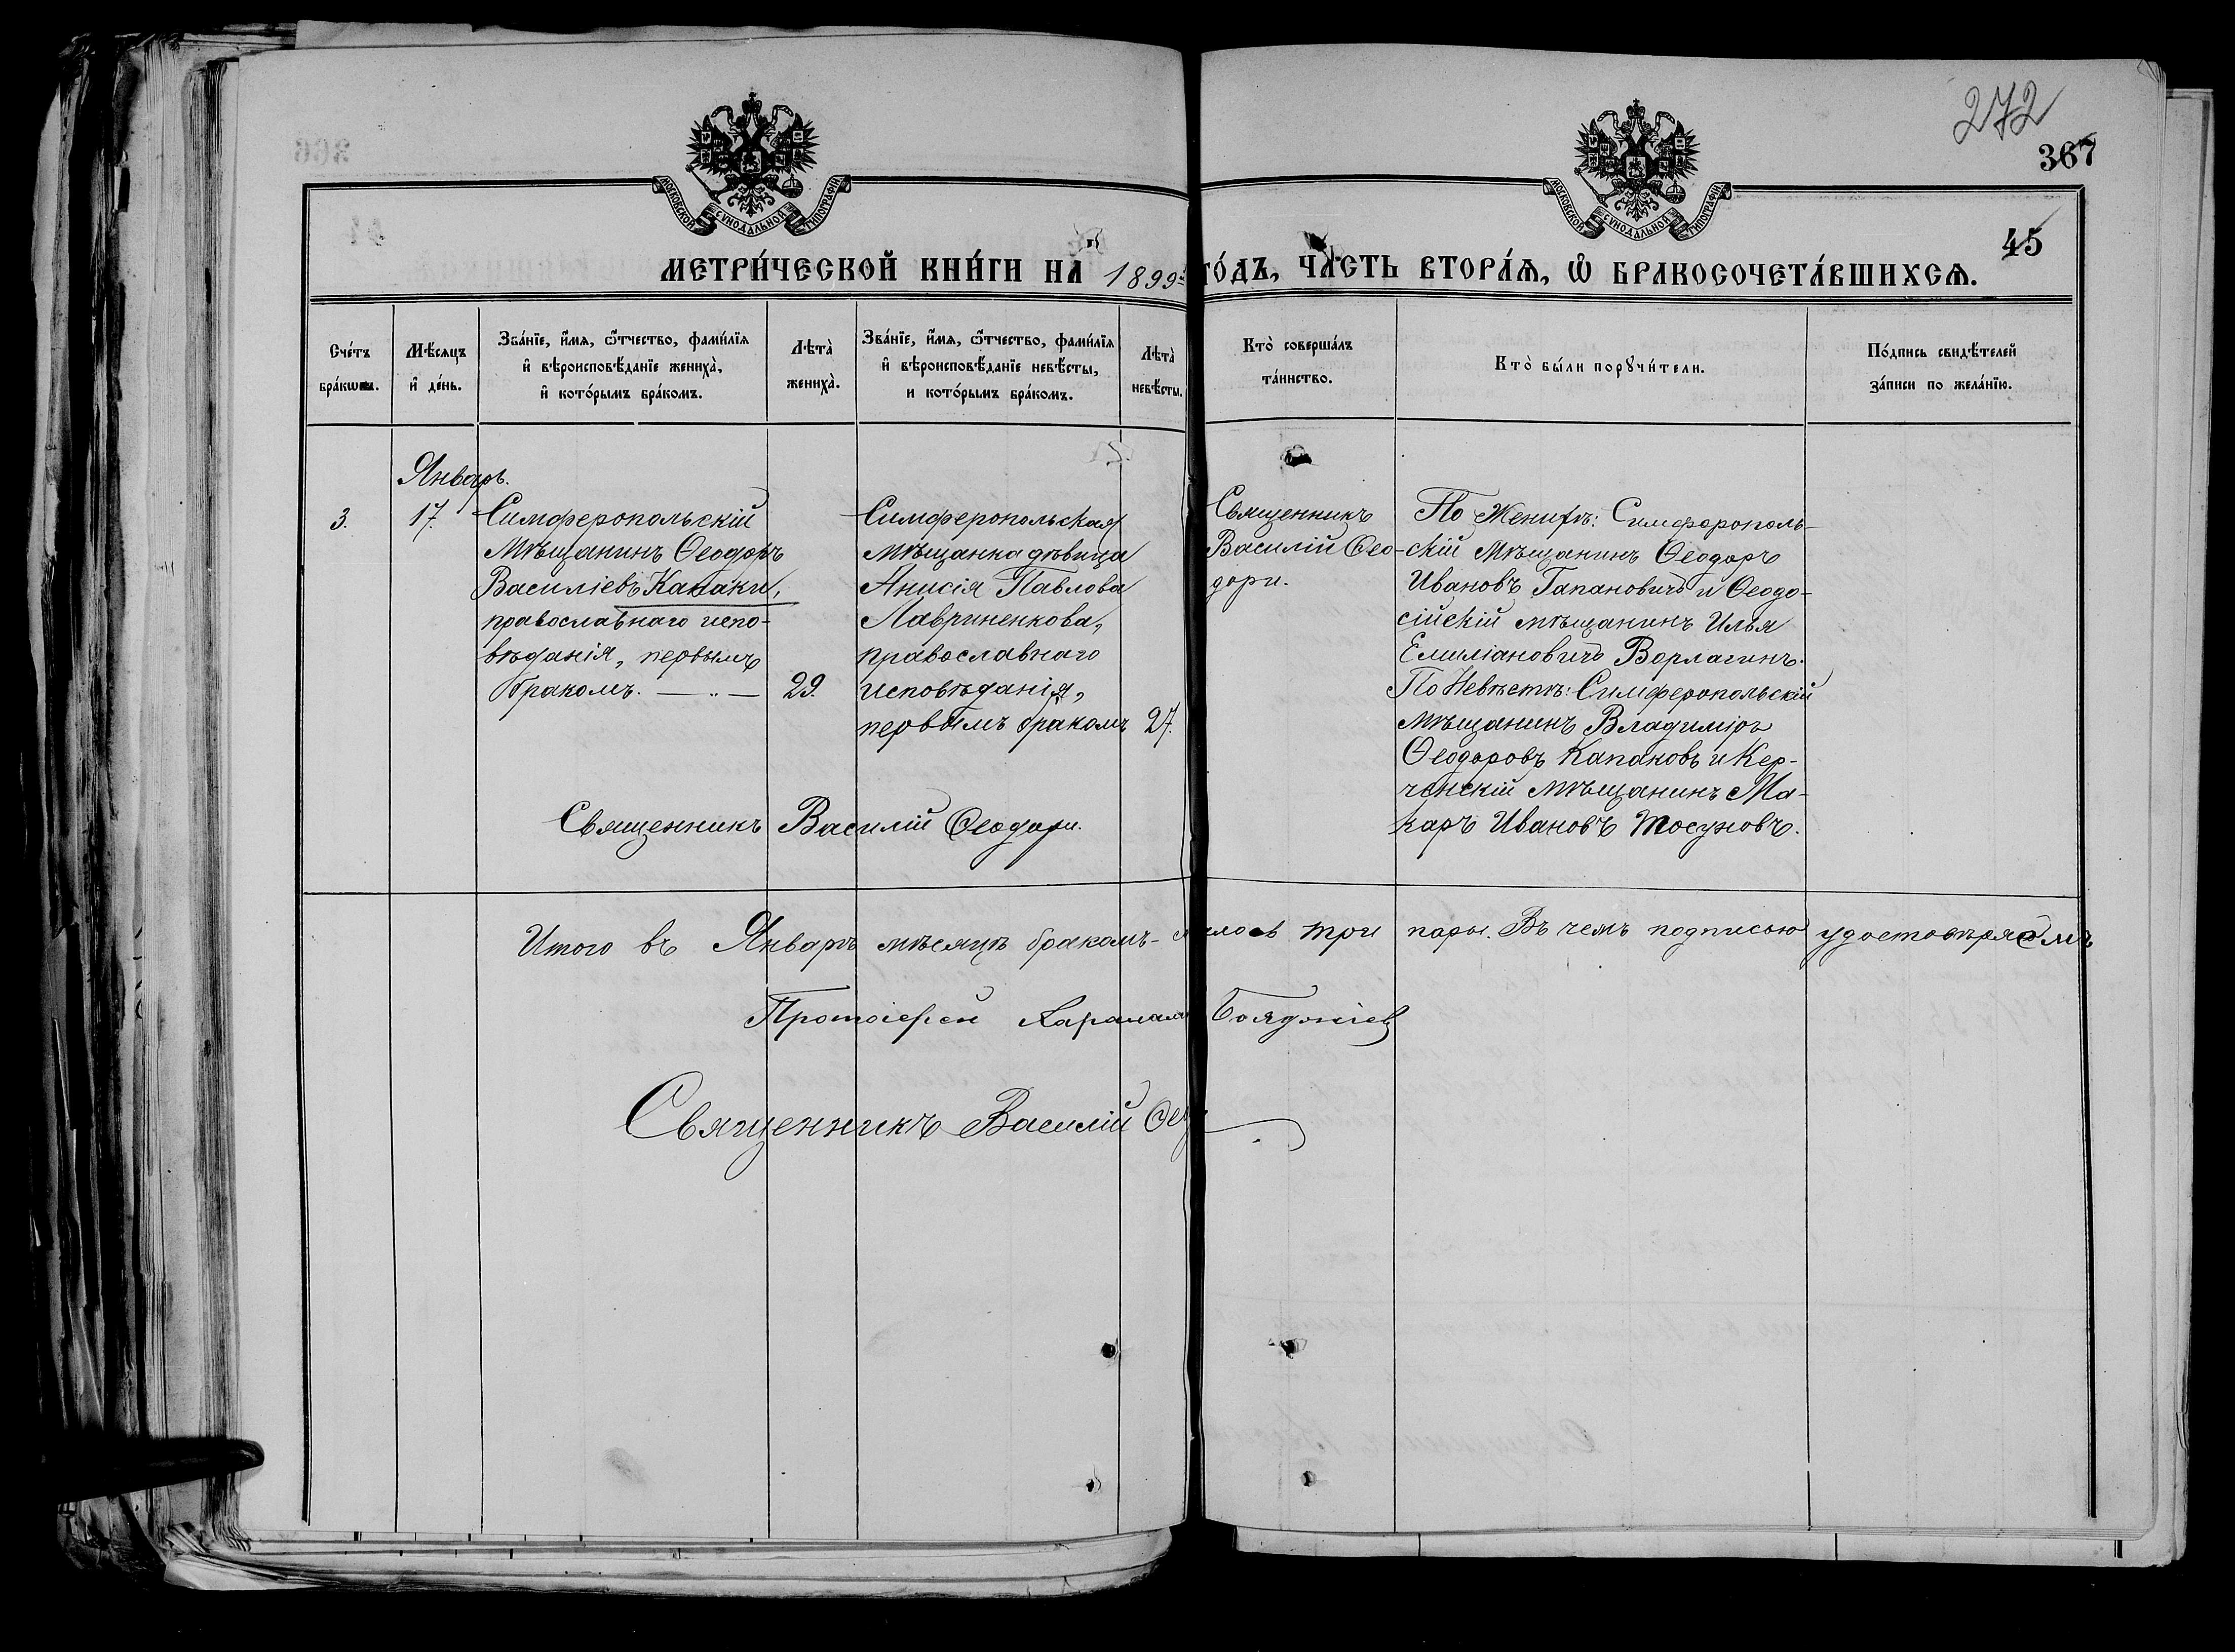 272
367
45
МОСКОВСКОЙ СѴНОДАЛЬНОЙ ТИПОГРАФІИ
МОСКОВСКОЙ СѴНОДАЛЬНОЙ ТИПОГРАФІИ
МЕТРИ́ЧЕСКОЙ КНИ́ГИ НА 1899й ГО́ДЪ, ЧА́СТЬ ВТОРА́Я, Ѡ БРАКОСОЧЕТА́ВШИХСЯ.
Сче́тъ бра́кѡвъ.
Мѣ́сяцъ и де́нь.
Зва́нїе, и́мя, ѻ́тчество, фами́лїя
и вѣроисповѣ́данїе жениха̀,
и кото́рымъ бра́комъ.
Лѣта̀ жениха̀.
Зва́нїе, и́мя, ѻ́тчество, фами́лїя
и вѣроисповѣ́данїе невѣ́сты,
и кото́рымъ бра́комъ.
Лѣта̀ невѣ́сты.
Кто̀ соверша́лъ
та́инство.
Кто̀ бы́ли порꙋчи́тели.
По́дпись свидѣ́телей
за́писи по жела́нїю.
Январь.
3.
17.
Симферопольскій
Мѣщанинъ Ѳеодоръ
Василіевъ Капаки,
православнаго испо-
вѣданія, первымъ
бракомъ.
29.
Симферопольская
мѣщанка дѣвица
Анисія Павлова
Лавриненкова,
православнаго
исповѣданія,
первымъ бракомъ
27.
Священникъ
Василій Ѳео-
дори.
По Женихѣ: Симферополь-
скій Мѣщанинъ Ѳеодоръ
Ивановъ Гапановичъ и Ѳеодо-
сійскій мѣщанинъ Илья
Емиліановичъ Ворлагинъ.
По Невѣстѣ: Симферопольскій
мѣщанинъ Владиміръ
Ѳеодоровъ Капаковъ и Кер-
ченскій мѣщанинъ Ма-
каръ Ивановъ Тосуновъ.
Священникъ Василій Ѳеодори.
Итого въ Январѣ мѣсяцѣ бракомъ три пары. Въ чемъ подписью удостовѣряемъ
Протоіерей Бояджіев
Священникъ Василій